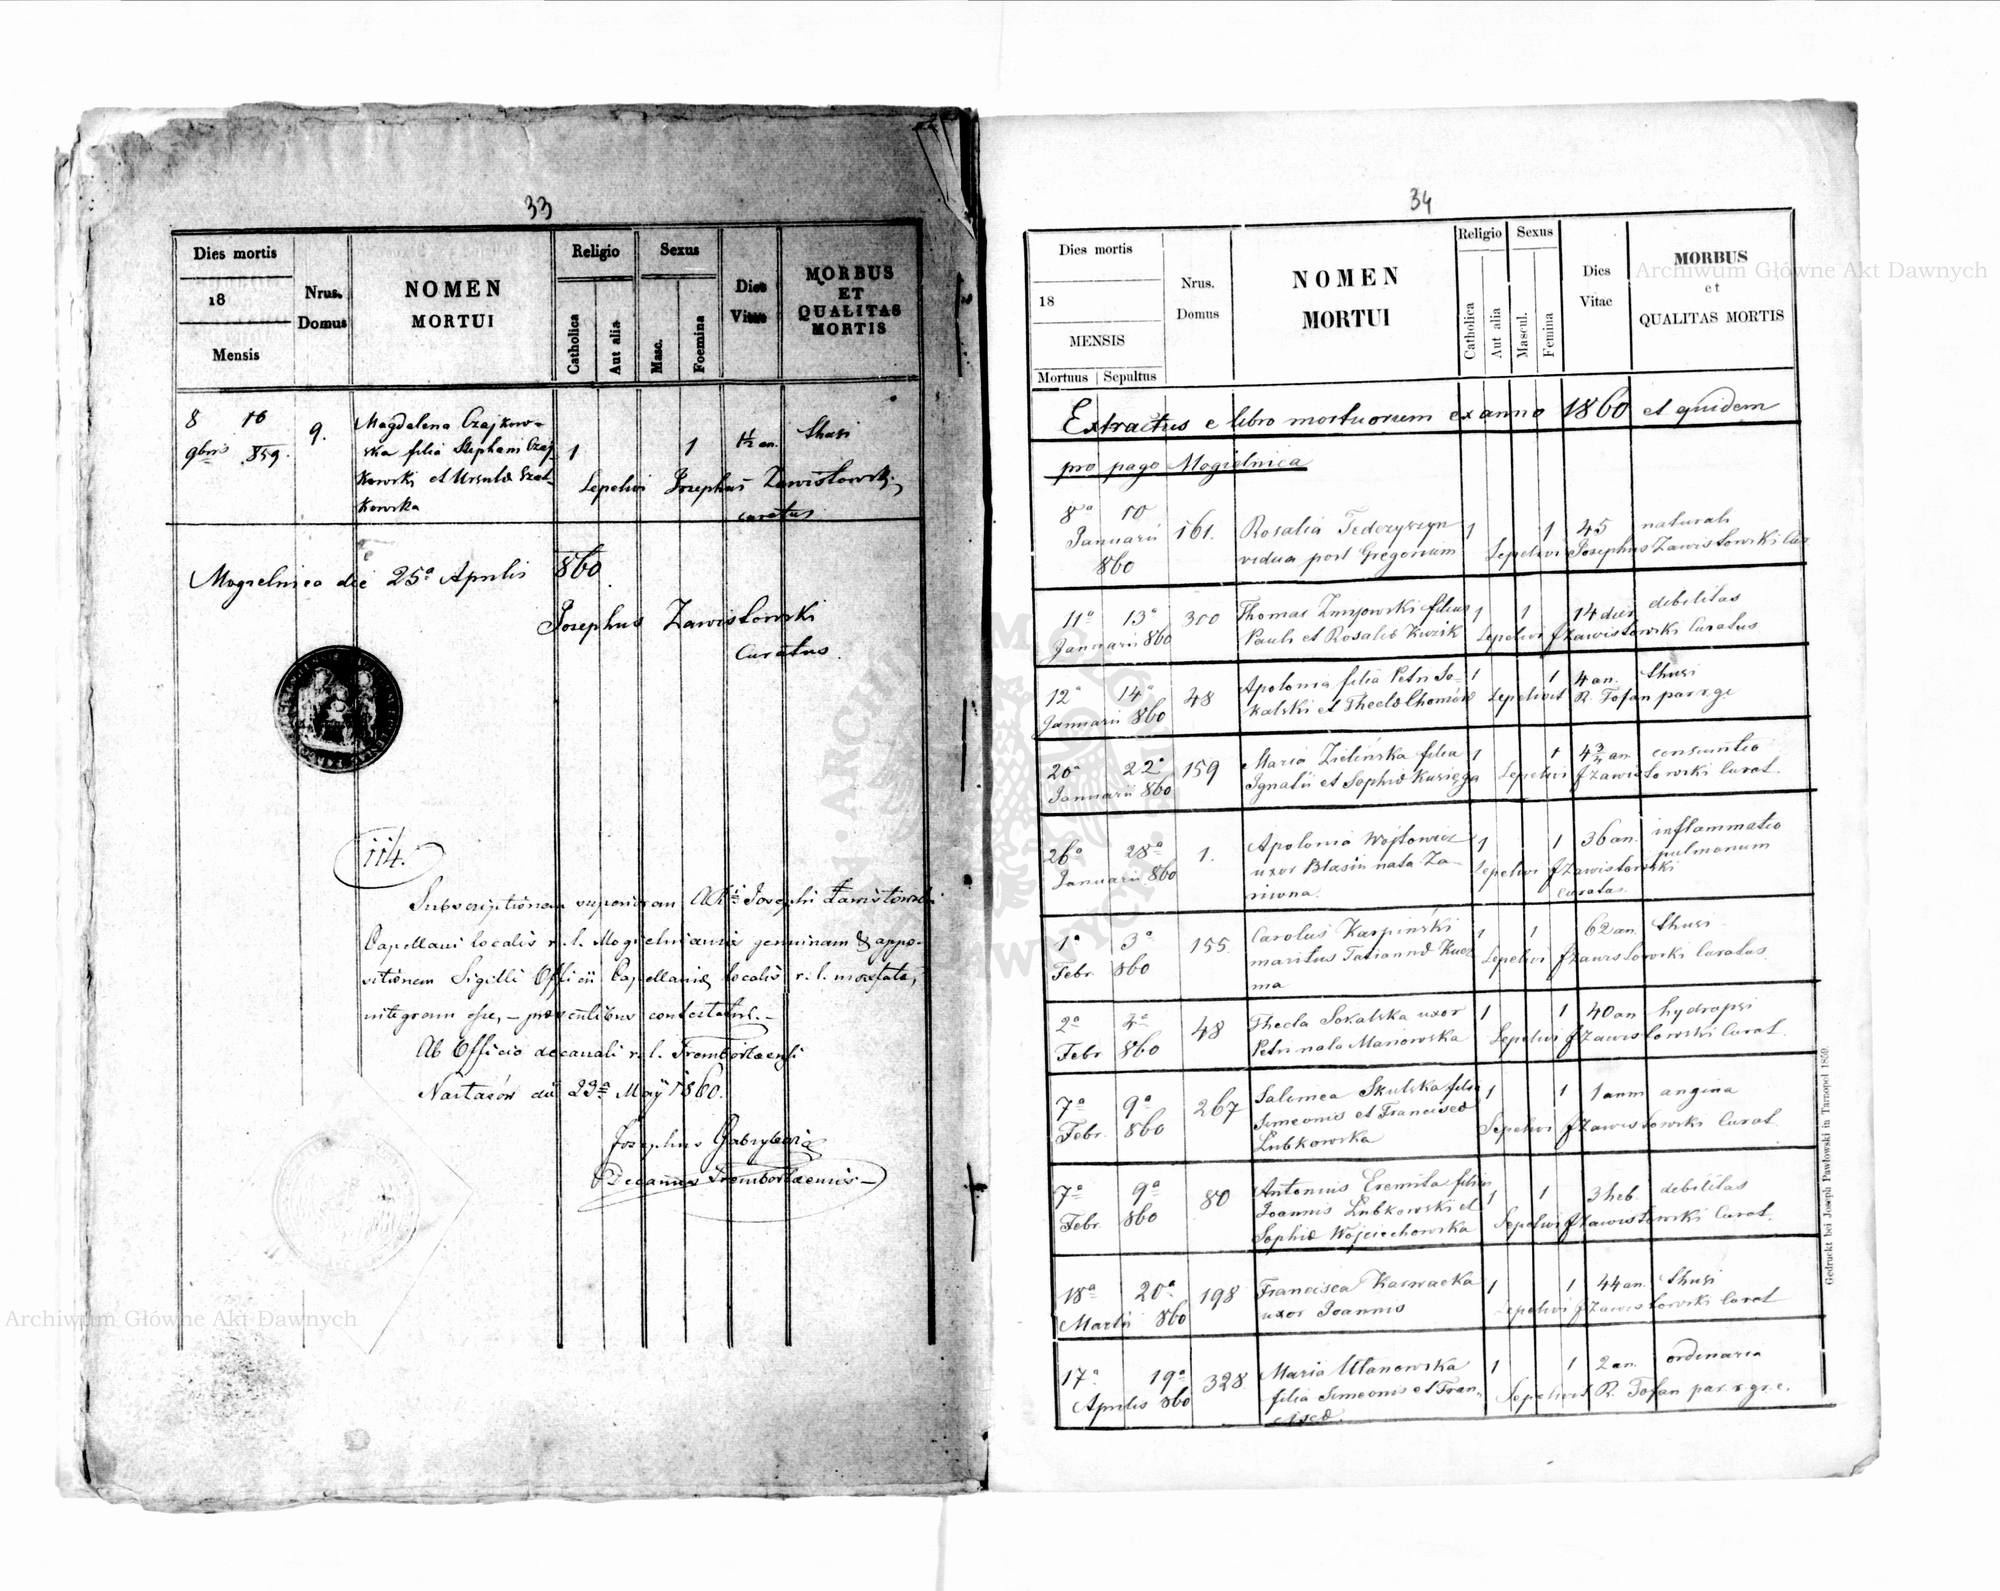 33
Dies mortis
18
Mensis
Nrus.
Domus
NOMEN
MORTUI
Religio
Catholica
Aut alia
Sexus
Masc.
Foemina
Dies
Vitae
MORBUS
ET
QUALITAS
MORTIS
8 10
9bris 859.
9.
Magdalena Czajkow-
ska filia Stephani Czaj-
kowski et Ursulæ
kowska
1
1
1½ an.
thusi
Sepelivi Josephus Zawisłowski,
curatus
Mogielnica die 25a Aprilis 860.
Josephus Zawisłowski
Curatus.
114.
Subscriptionem superiorem Josephi Zawisłowski
Capellani localis r. l. Mogielnicensis genuinam & appo-
sitionem Sigilli Officii Capellaniæ localis r. l.
integram esse, – præsentibus contestatur. –
Ab Officio decanali r. l. Trembowlaensi
Nastasów die 23a Maji 1860.
Josephus
Decanus Trembowlaensis –
Archiwum Główne Akt Dawnych
34
Dies mortis
18
MENSIS
Mortuus Sepultus
Nrus.
Domus
NOMEN
MORTUI
Religio
Catholica
Aut alia
Sexus
Mascul.
Femina
Dies
Vitae
MORBUS
et
QUALITAS MORTIS
Archiwum Główne Akt Dawnych
Extractus e libro mortuorum ex anno 1860 et quidem
pro pago Mogielnica
8a 10
Januarii
860
161.
Rosalia Fedczyszyn
vidua post Gregorium
1 1 45 naturali
Sepelivi Josephus Zawisłowski Cur
11a 13a
Januarii 860
300
Thomas Zmyjowski filius
Pauli et Rosaliæ Kuzik
1 1 14 dies debilitas
Sepelivi JZawisłowski Curatus
12a 14a
Januarii 860
48
Apolonia filia Petri So-
kalski et Theclæ Chomów
1 1 4 an. thusi
Sepelivit R. Tofan par r. gr.
20a 22a
Januarii 860
159
Maria Zielińska filia
Ignatii et Sophiæ Kusięga
1 1 4¾ an.
Sepelivi JZawisłowski Curat.
26a 28a
Januarii 860
1.
Apolonia Wojtowicz
uxor Blasii nata Za-
niowna.
1 1 36 an. inflammatio
pulmonum
Sepelivi JZawisłowski
Curatus.
1a 3a
Febr. 860
155.
Carolus Karpiński
maritus Tatiannæ Kucz
ma
1 1 62 an. thusi.
Sepelivi JZawisłowski Curatus.
2a 4a
Febr 860
48
Thecla Sokalska uxor
Petri nata Manowska
1 1 40 an hydropsi
Sepelivi JZawisłowski Curat.
7a 9a
Febr. 860
267
Salomea Skulska filia
Simeonis et Franciscæ
Lubkowska
1 1 1 anni angina
Sepelivi JZawisłowski Curat
7a 9a
Febr. 860
80
Antonius Eremita filius
Joannis Lubkowski et
Sophiæ Wojciechowska
1 1 3 heb. debilitas
Sepelivi JZawisłowski Curat.
18a 20a
Martii 860
198
Francisca Karwacka
uxor Joannis
1 1 44 an. thusi
Sepelivi JZawisłowski Curat
17a 19a
Aprilis 860
328
Maria Ułanowska
filia Simeonis et Fran-
ciscæ.
1 1 2 an. ordinaria
Sepelivit R. Tofan par. r. gr. c.
Gedruckt bei Joseph Pawłowski in Tarnopol 1859.